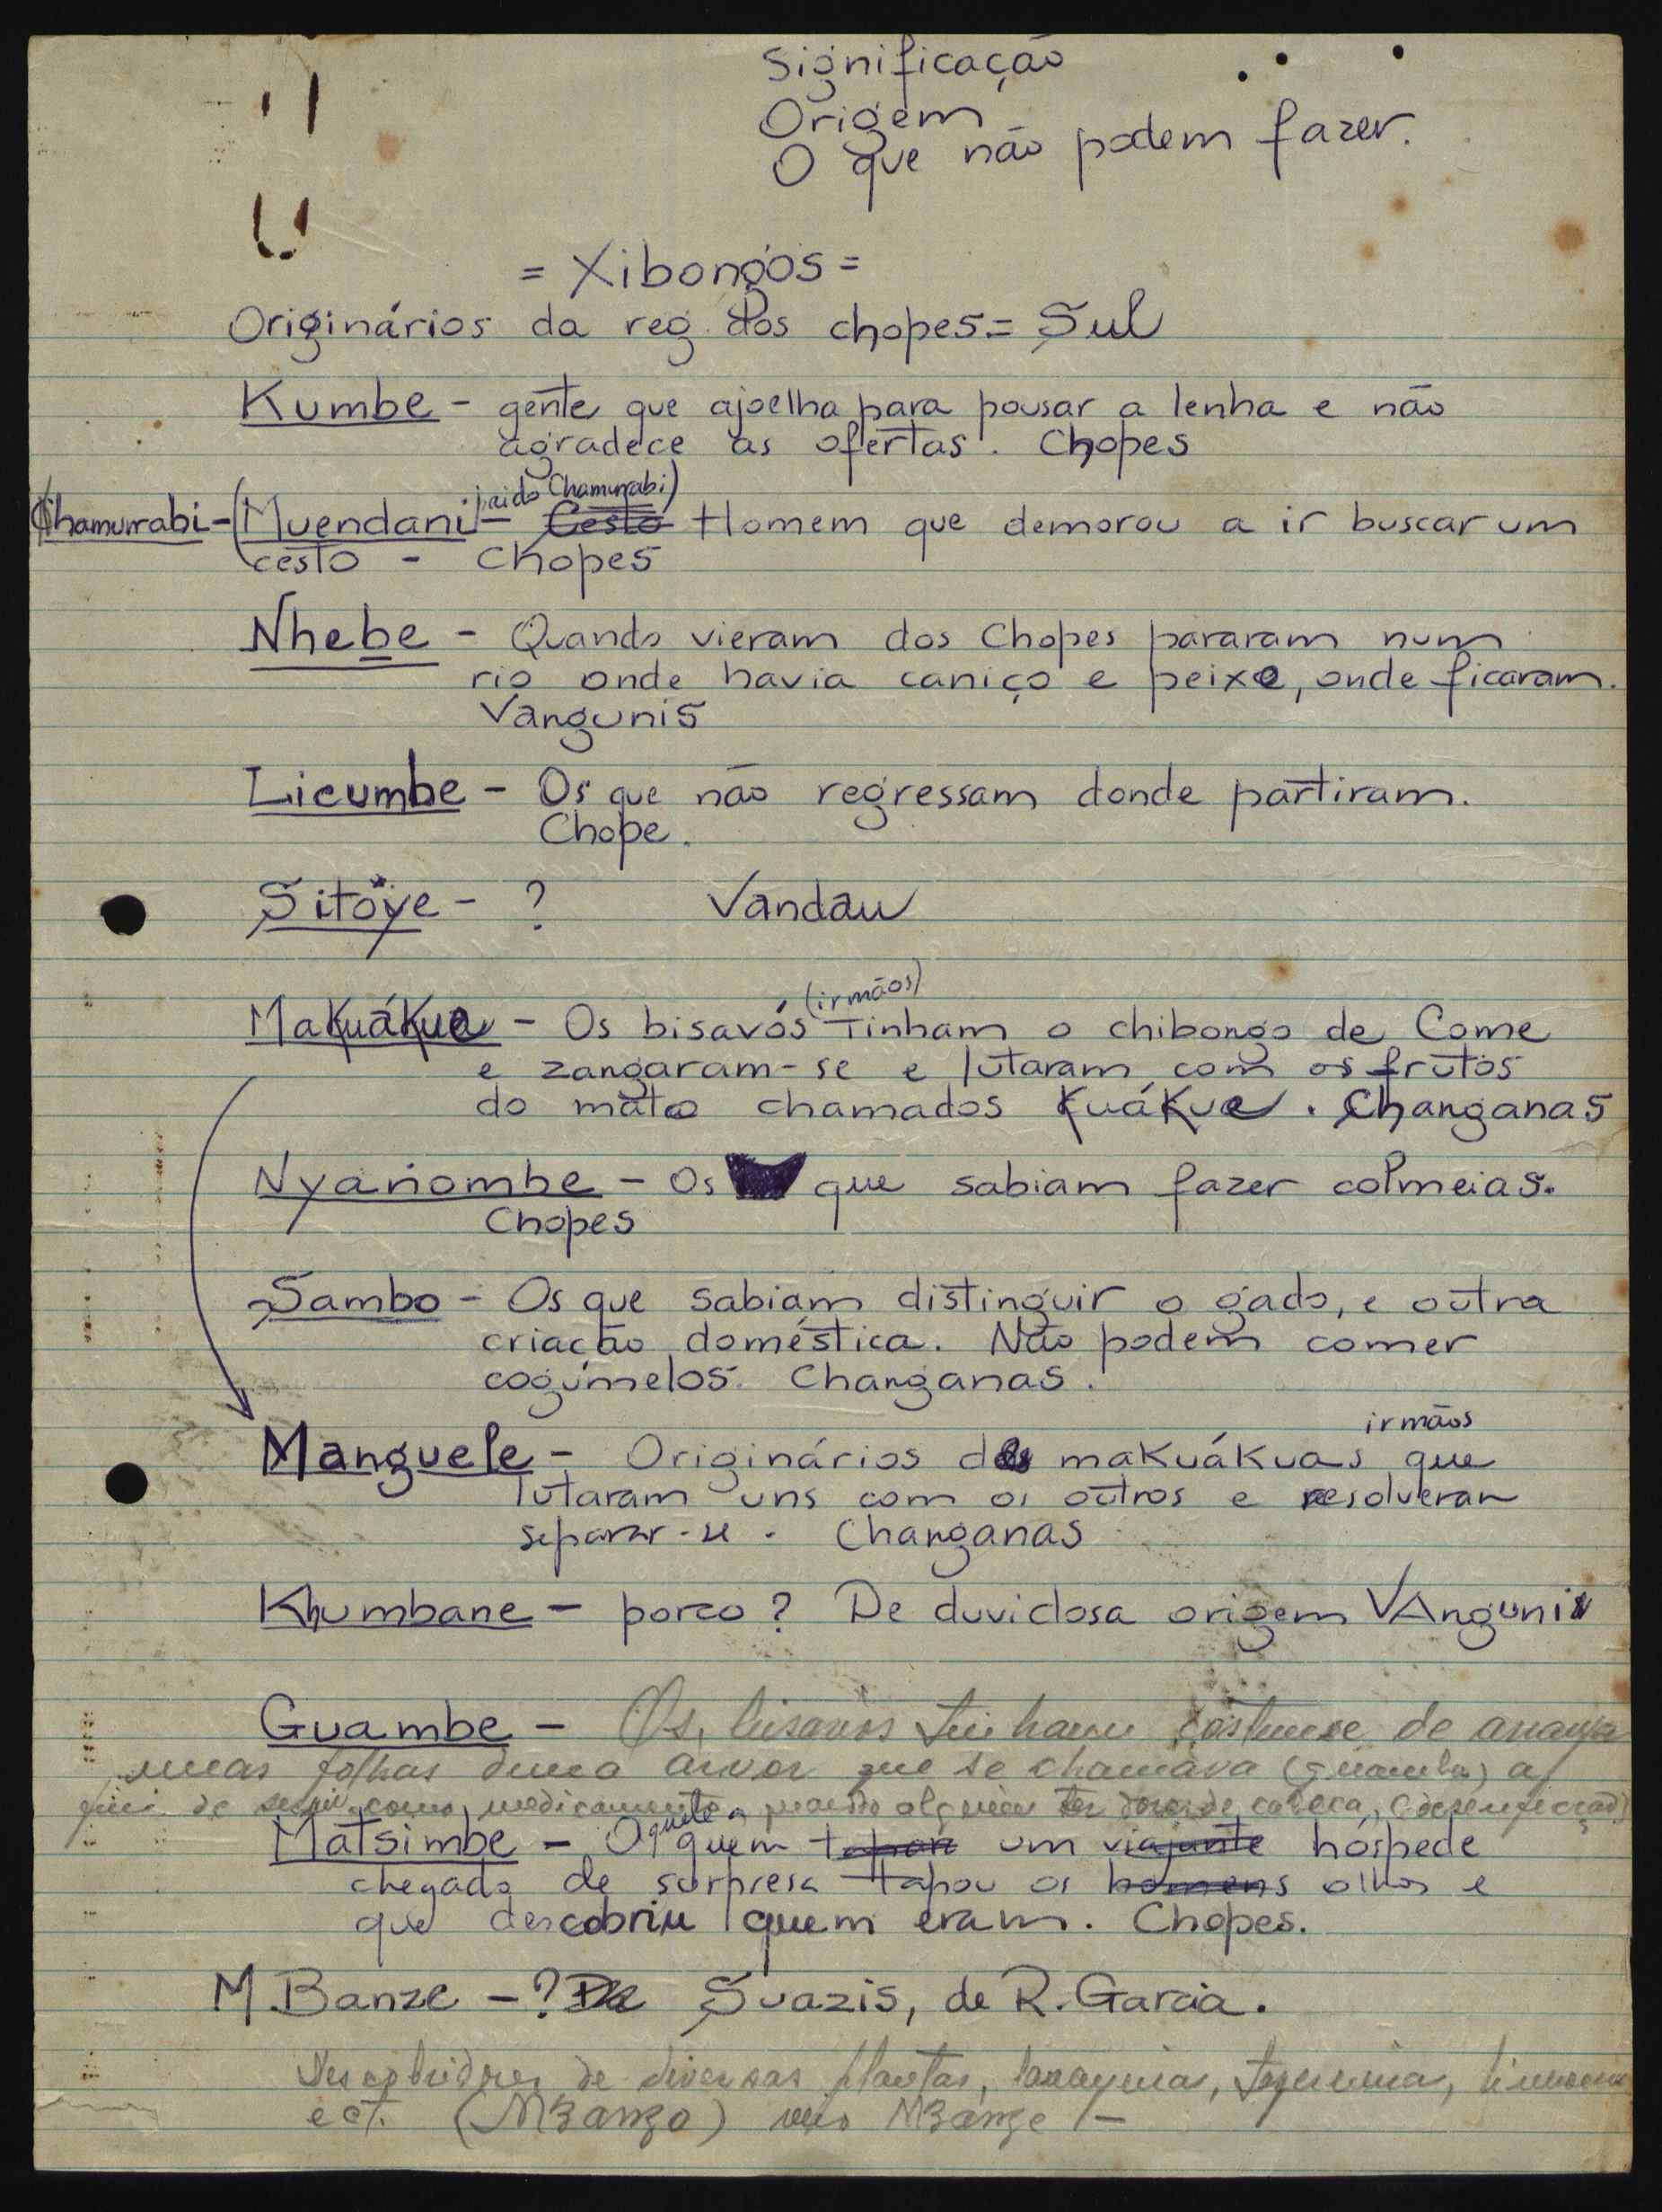 Significação
Origem
O que não podem fazer.
= Xibongos =
Originários da reg. dos chopes = Sul
Kumbe - gente que ajoelha para pousar a lenha e não
agradece as ofertas. Chopes
Chamurrabi)
Chamurrabi - (Muendani - Cesto Homem que demorou a ir buscar um
cesto - Chopes
Nhebe - Quando vieram dos Chopes pararam num
rio onde havia caniço e peixe, onde ficaram.
Vangunis
Licumbe - Os que não regressam donde partiram.
Chope.
Sitóye - ? Vandau
(irmãos)
Makuákua - Os bisavós tinham o chibongo de Come
e zangaram-se e lutaram com os frutos
do mato chamados Kuákua. Changanas
Nyañombe - Os que sabiam fazer colmeias.
Chopes
Sambo - Os que sabiam distinguir o gado, e outra
criação doméstica. Não podem comer
cogumelos. Changanas.
irmãos
Manguele - Originários dos makuákuas que
lutaram uns com os outros e resolveram
separar-se. Changanas
Khumbane - porco? De duvidosa origem VAngunis
Guambe - Os bisavós tinham costume de
umas folhas duma arvor que se chamava (guambe) a
fim de como medicamento quando alguém ter dores de cabeça, (desenfecção)
Matsimbe - O quem tapou um viajante hóspede
chegado de surpresa tapou os homens olhos e
que descobriu quem eram. Chopes.
M Banze - ? De Suazis, de R. Garcia.
Descobridores de diversas plantas,
ect. (M'Banzo) veio M'Banze -